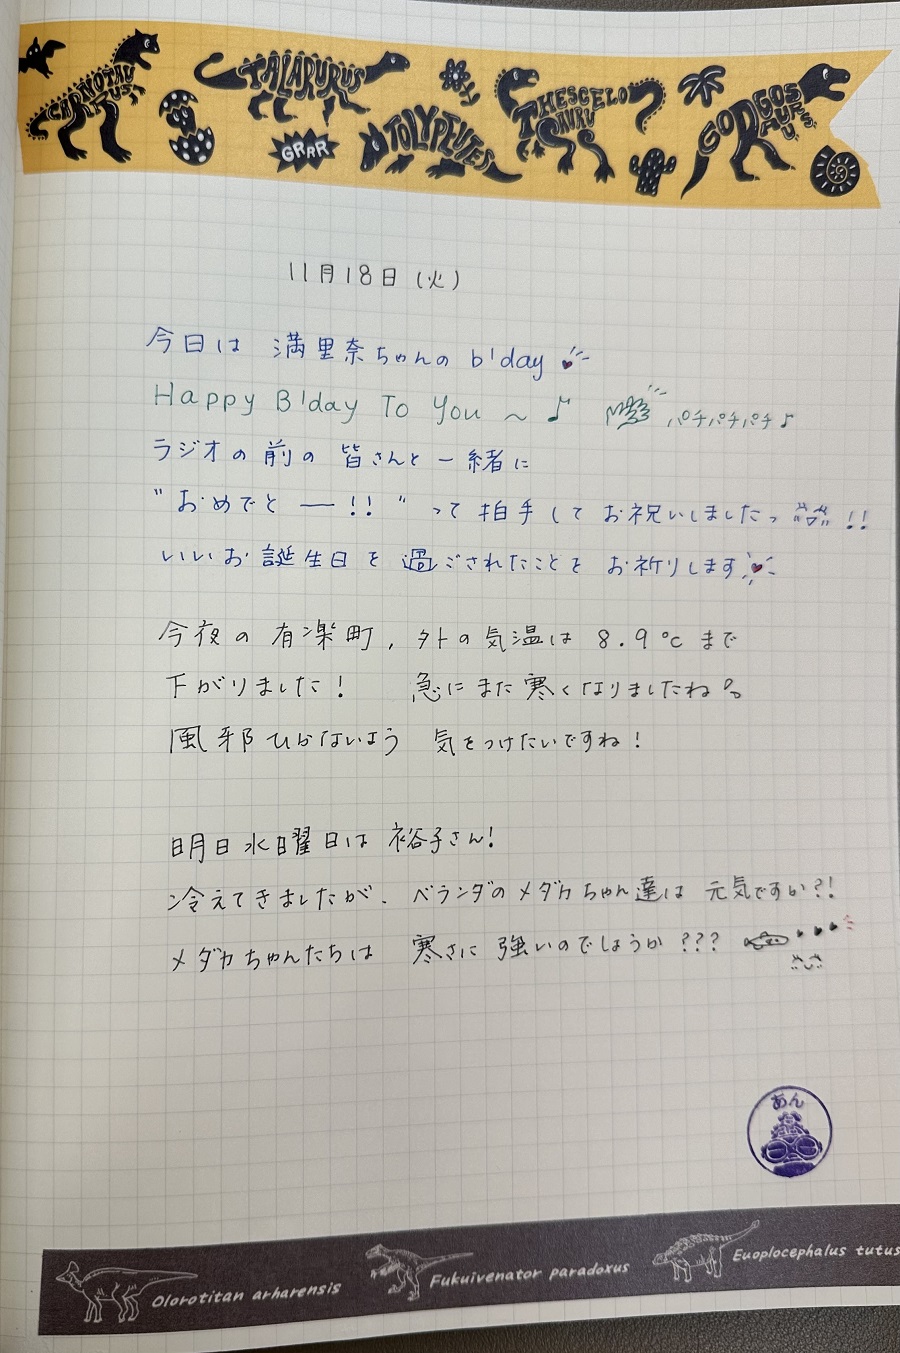 CARNOTAURUS
TALARURUS
GRRR
TOLYPEUTES
THESCELOSAURU
GORGOSAURUS
11月18日(火)
今日は 満里奈ちゃんの b'day
Happy B'day To You ~ ♪ パチパチパチ♪
ラジオの前の皆さんと一緒に
"おめでとー!!" って拍手してお祝いしましたっ !!
いいお誕生日を過ごされたことをお祈りします
今夜の有楽町, 外の気温は 8.9℃まで
下がりました! 急にまた寒くなりましたね。
風邪ひかないよう 気をつけたいですね!
明日水曜日は 裕子さん!
冷えてきましたが、ベランダのメダカちゃん達は 元気ですか?!
メダカちゃんたちは 寒さに強いのでしょうか???
あん
Olorotitan arharensis
Fukuivenator paradoxus
Euoplocephalus tutus